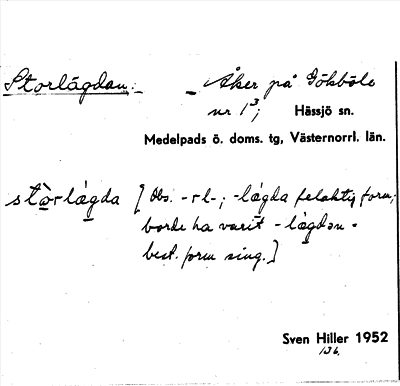 Storlägdan: - - Åker på Gökböle
nr 1³; Hässjö sn.
Medelpads ö. doms. tg, Västernorrl. län.
stòrlägda [Obs. -rl-; -lägda felaktig form;
borde ha varit -lägdən -
best. form sing.]
Sven Hiller 1952